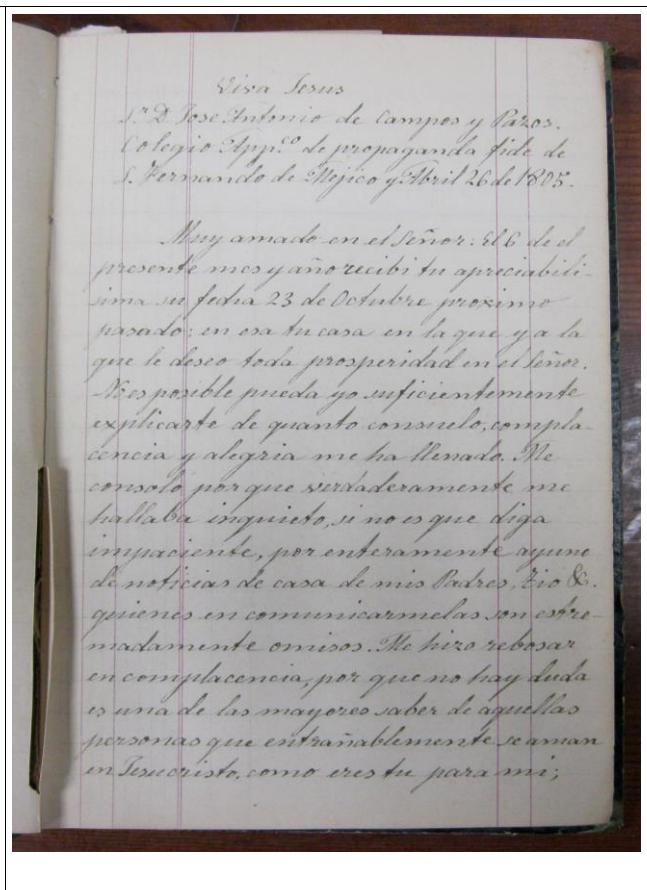 Viva Jesus
Sr. D. Jose Antonio de Campos y Pazos.
Colegio App.co de propaganda fide de
S. Fernando de Mejico y Abril 26 de 1805.
Muy amado en el Señor: El 6 de el
presente mes y año recibi tu apreciabili-
sima su fecha 23 de Octubre proximo
pasado: en esa tu casa en la que y a la
que le deseo toda prosperidad en el Señor.
No es posible pueda yo suficientemente
explicarte de quanto consuelo, compla-
cencia y alegria me ha llenado. Me
consoló por que verdaderamente me
hallaba inquieto, si no es que diga
impaciente, por enteramente ayuno
de noticias de casa de mis Padres, Tio &c.
quienes en comunicarmelas son estre-
madamente omisos. Me hizo rebosar
en complacencia, por que no hay duda
es una de las mayores saber de aquellas
personas que entrañablemente se aman
en Jesucristo, como eres tu para mi;